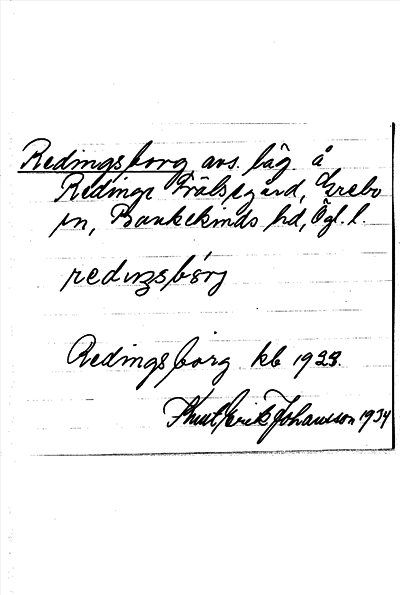 Redingsborg avs. läg. å
Redinge Frälsegård, Grebo
sn, Bankekinds hd, Ögl. l.
redɩŋsbǒrj
Redingsborg kb 1923.
Knut Erik Johansson 1934